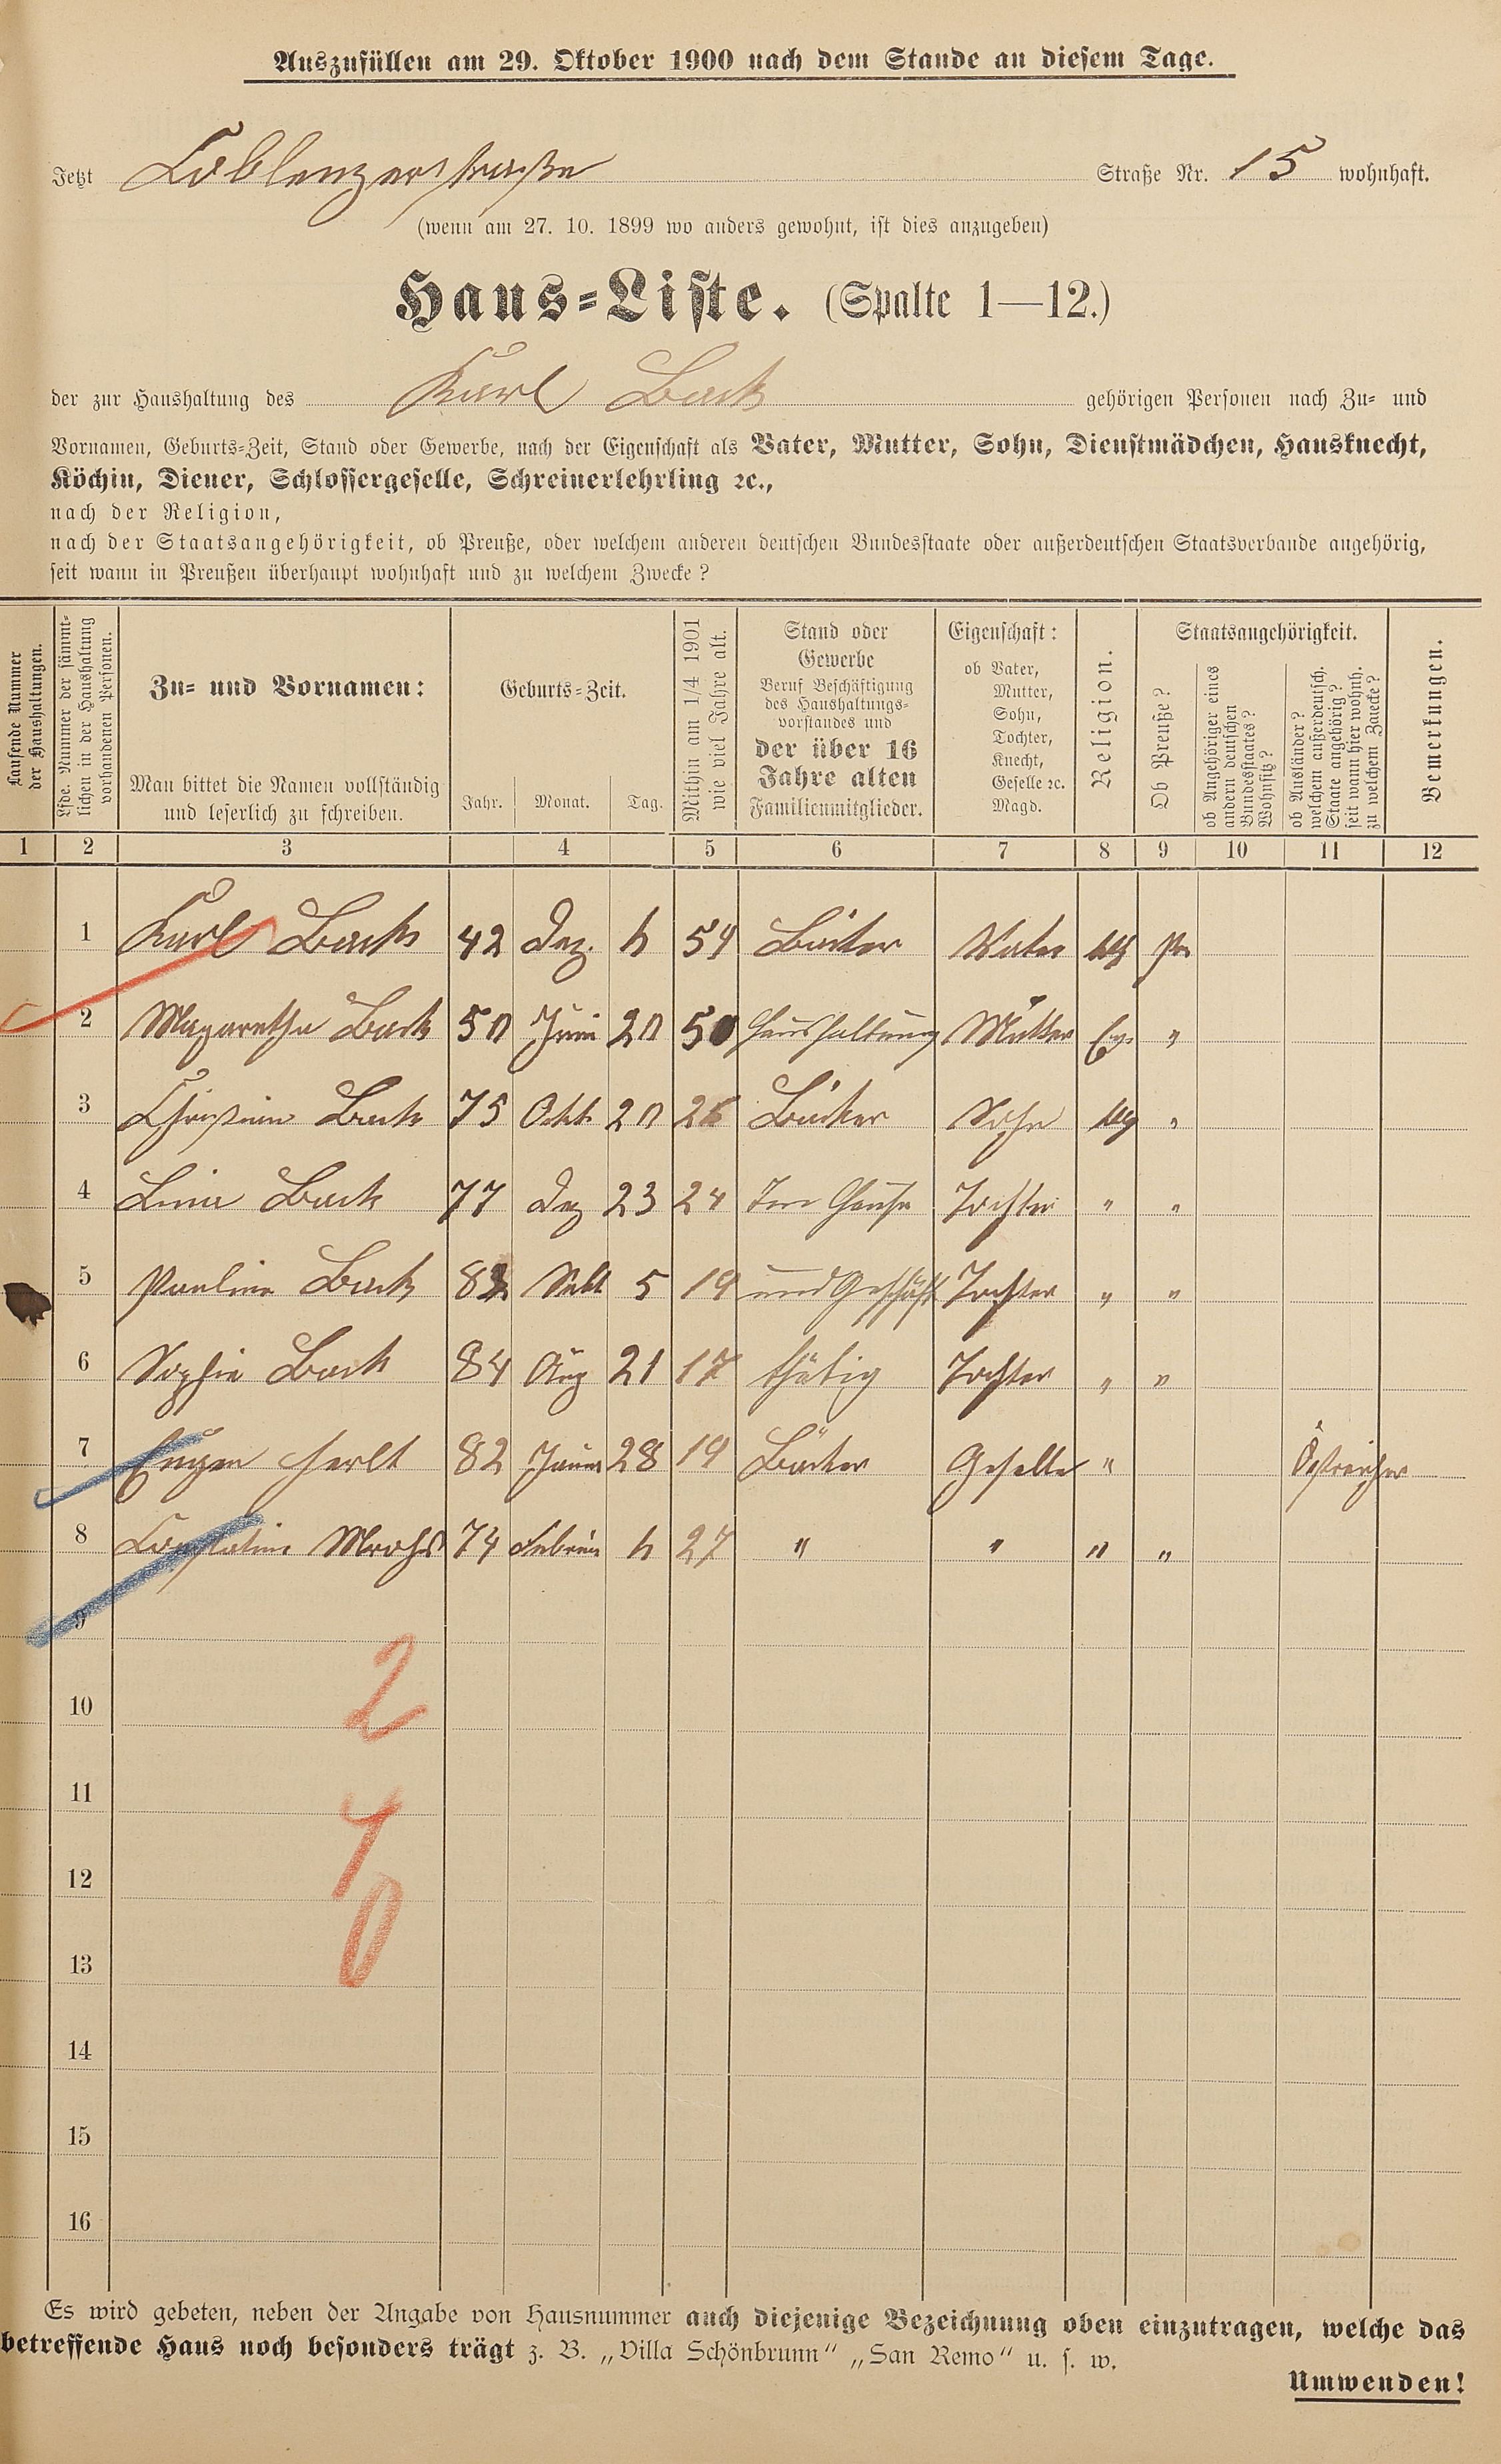 Auszufüllen am 29. Oktober 1900 nach dem Stande an diesem Tage.
Jetzt Coblenzerstraße Straße Nr. 15 wohnhaft.
(wenn am 27. 10. 1899 wo anders gewohnt, ist dies anzugeben)
Haus-Liste. (Spalte 1—12.)
der zur Haushaltung des Karl Back gehörigen Personen nach Zu- und
Vornamen, Geburts-Zeit, Stand oder Gewerbe, nach der Eigenschaft als Vater, Mutter, Sohn, Dienstmädchen, Hausknecht,
Köchin, Diener, Schlossergeselle, Schreinerlehrling ꝛc.,
nach der Religion,
nach der Staatsangehörigkeit, ob Preuße, oder welchem anderen deutschen Bundesstaate oder außerdeutschen Staatsverbande angehörig,
seit wann in Preußen überhaupt wohnhaft und zu welchem Zwecke?
Laufende Nummer
der Haushaltungen.
Lfde. Nummer der sämmt-
lichen in der Haushaltung
vorhandenen Personen.
Zu- und Vornamen:
Man bittet die Namen vollständig
und leserlich zu schreiben.
Geburts-Zeit.
Jahr. Monat. Tag.
Mithin am 1/4 1901
wie viel Jahre alt.
Stand oder
Gewerbe
Beruf Beschäftigung
des Haushaltungs-
vorstandes und
der über 16
Jahre alten
Familienmitglieder.
Eigenschaft:
ob Vater,
Mutter,
Sohn,
Tochter,
Knecht,
Geselle ꝛc.
Magd.
Religion.
Staatsangehörigkeit.
Ob Preuße?
ob Angehöriger eines
andern deutschen
Bundesstaates?
Wohnsitz?
ob Ausländer?
welchem außerdeutsch.
Staate angehörig?
seit wann hier wohnh.
zu welchem Zwecke?
Bemerkungen.
1 2 3 4 5 6 7 8 9 10 11 12
1 Karl Back 42 Dez. 54 Bäcker Vater Pr
2 Magaretha Back 50 Juni 20 50 Haushaltung Mutter Ev. "
3 Christian Back 75 Okt. 20 Bäcker Sohn "
4 Lina Back 77 Dez 23 24 Im Hause Tochter " "
5 Paulina Back 5 19 und Geschäft Tochter " "
6 Sophie Back 84 Aug 21 17 thätig Tochter " "
7 Eugen Herlt 82 28 19 Bäcker Geselle " Östreicher
8 74 Februar 27 " " " "
9
10
11
12
13
14
15
16
2
4
0
Es wird gebeten, neben der Angabe von Hausnummer auch diejenige Bezeichnung oben einzutragen, welche das
betreffende Haus noch besonders trägt z. B. „Villa Schönbrunn“ „San Remo“ u. s. w.
Umwenden!